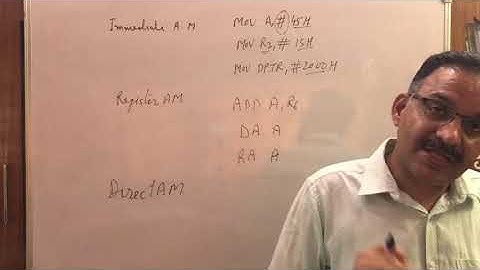 Immediate A M MOV A, # 45H
MOV R3, # 15H
MOV DPTR, # 2000 H
Register AM ADD A, R6
DA A
RA A
Direct AM